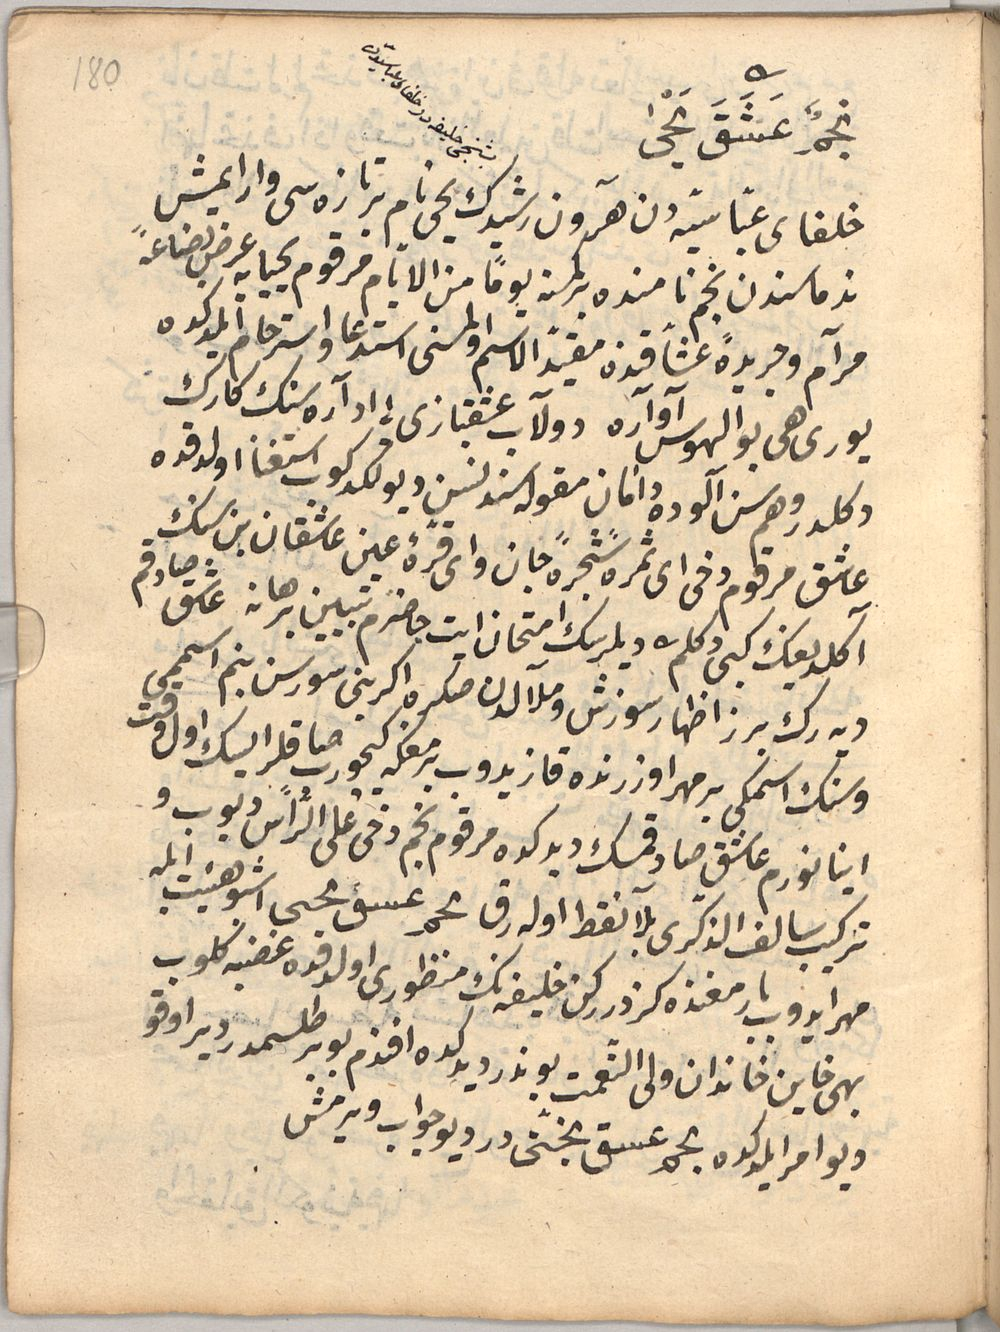 180
بشنجی خلیفه در خلفای عباسیدن
نَجْمٌ عَشَقَ یَحْیٰ
خلفای عبّاسیّه دن هٰرون رشیدك یحیی نام بر تازه سی وار ایمش
ندماسندن نجم نامنده بر کسنه یومًا من الایّام مرقوم یحیایه عرض بضاعۀ
مرآم و جریدۀ عشاقیذه مقیدًا الاسم والمسنی استدعا و استرحام ایلدکده
یوری هی بو الهوس آواره دولاب عشقبازی اداره سنك کارك
دکلدر وهم سن آلوده دامان مقوله سندنسن دیو لکدکوب استغنا اولدقده
عاشق مرقوم دخی ای ثمرۀ شجرۀ جان وای قرۀ عین عاشقان بن سنك
آکلدیغك کبی دکلم دیلرسك امتحان ایت حاضرم تبیین برهانه عاشق صادقم
دیه رك برز اظهار سوزش و ملالدن صکره اکر بنی سورسن بنم اسممی
وسنك اسمکی بر مهر اوزرنده قازیدوب پرمغکه کچورب صاقلر ایسك اول وقت
اینانورم عاشق صادقمسك دیدکده مرقوم نجم دخی علی الرّأس دیوب و
ترکیب سالف الذکری بلا نقط اوله رق محمر عسق محیی اشو هیئت ایله
مهر ایدوب پارمغنده کزدررکن خلیفه نك منظوری اولدقده غضبه کلوب
بهی خاین خاندان ولی النّعمت بو ندر دیدکده افندم بو بر طلسمدر دیر اوقو
دیو امر ایلدکده بجمر عسق بختی در دیو جواب ویرمش